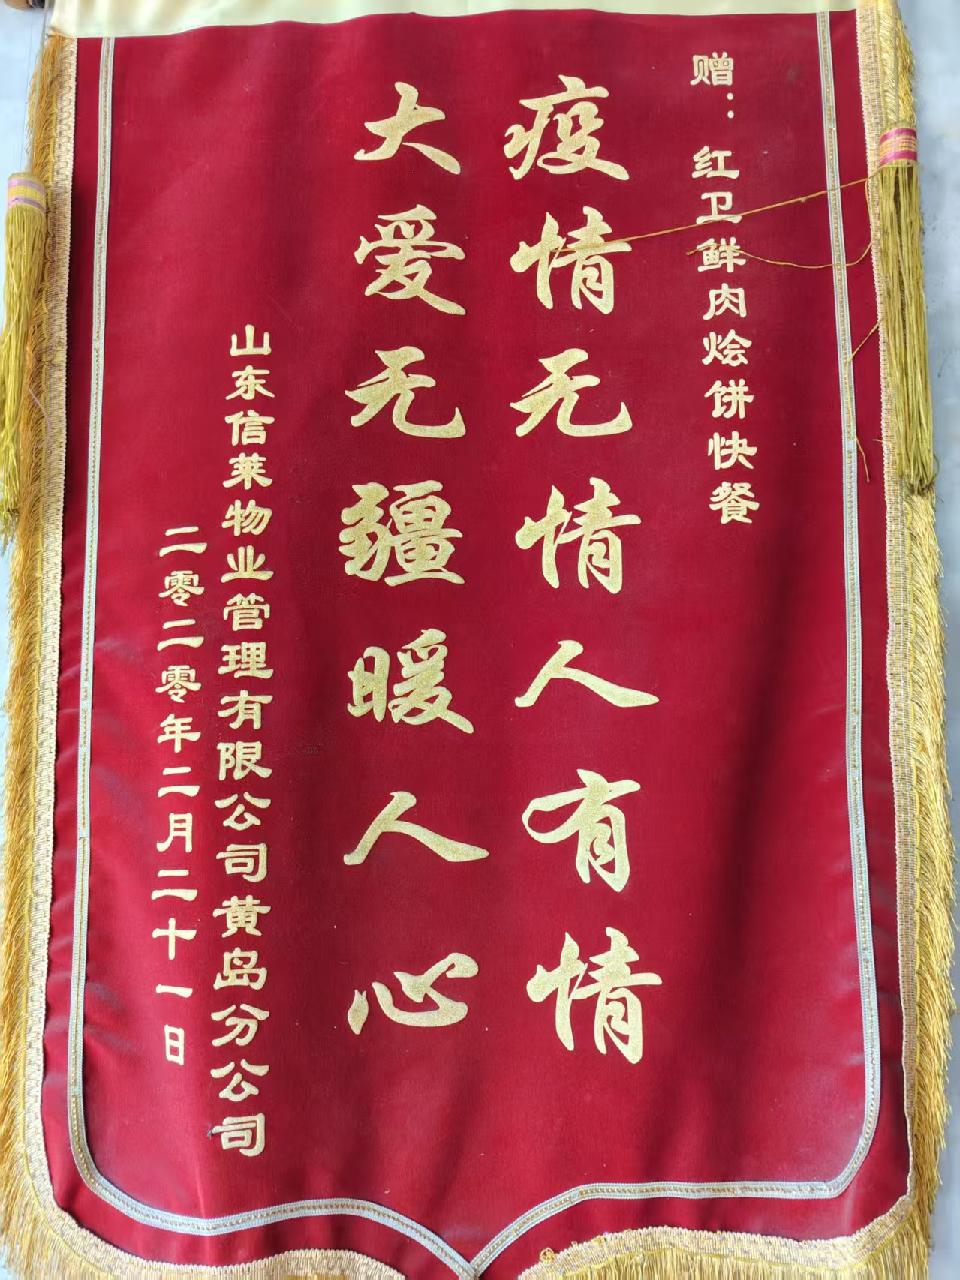 赠：红卫鲜肉烩饼快餐
疫情无情人有情
大爱无疆暖人心
山东信莱物业管理有限公司黄岛分公司
二零二零年二月二十一日